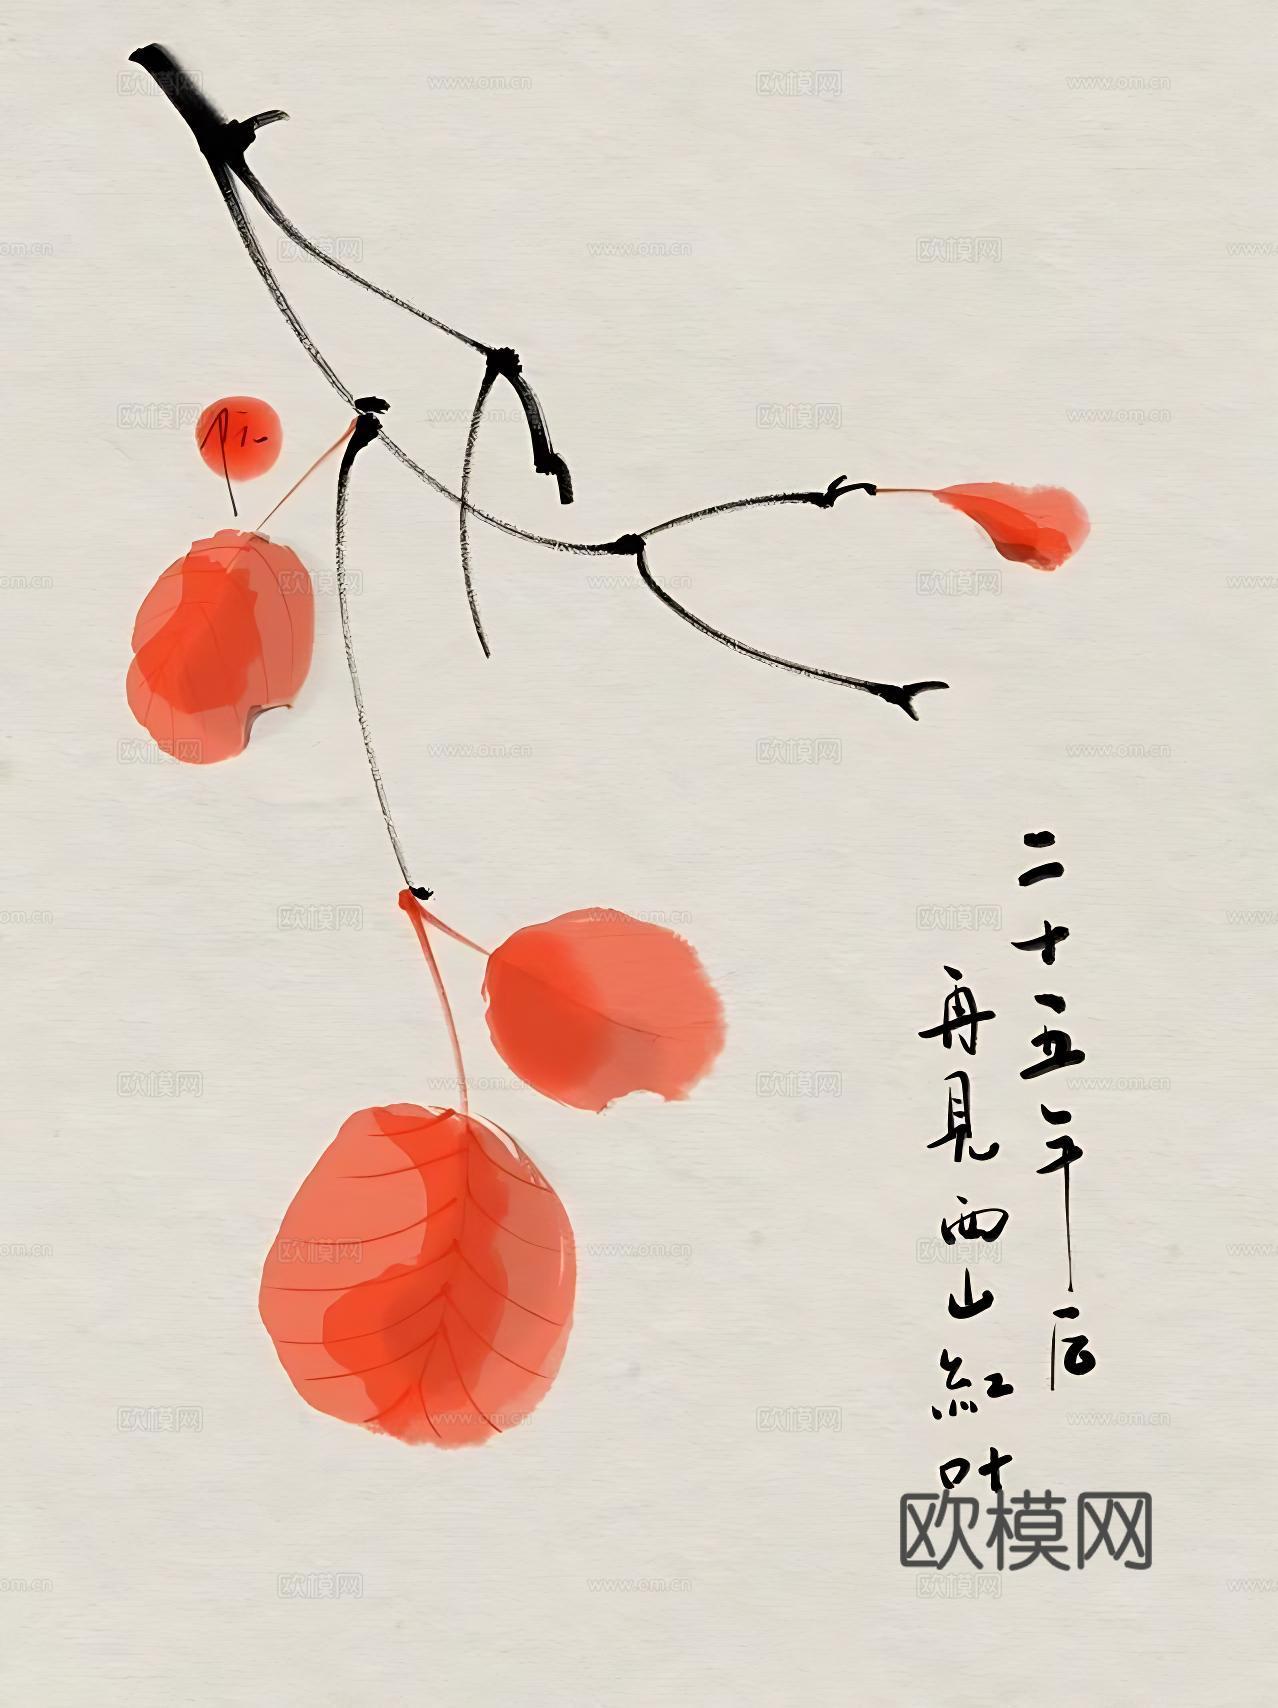 二十五年后
再見西山紅叶
欧模网
www.om.cn